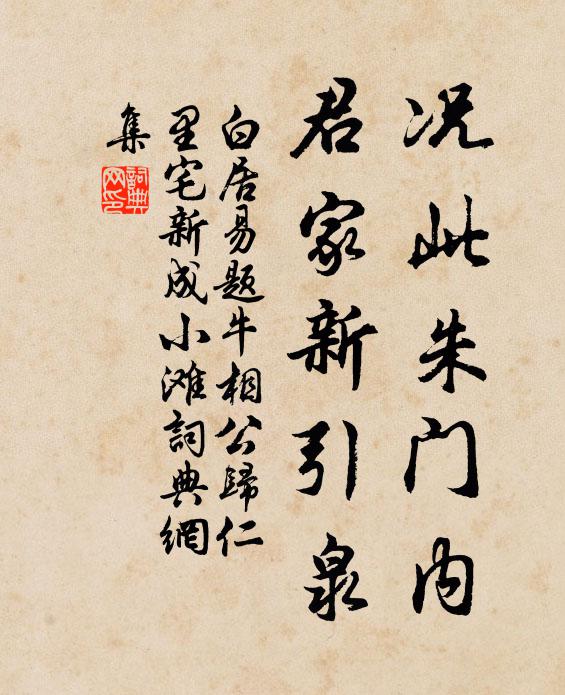 况此朱门内
君家新引泉
白居易题牛相公歸仁
里宅新成小滩詞典網
集
詞典
网印